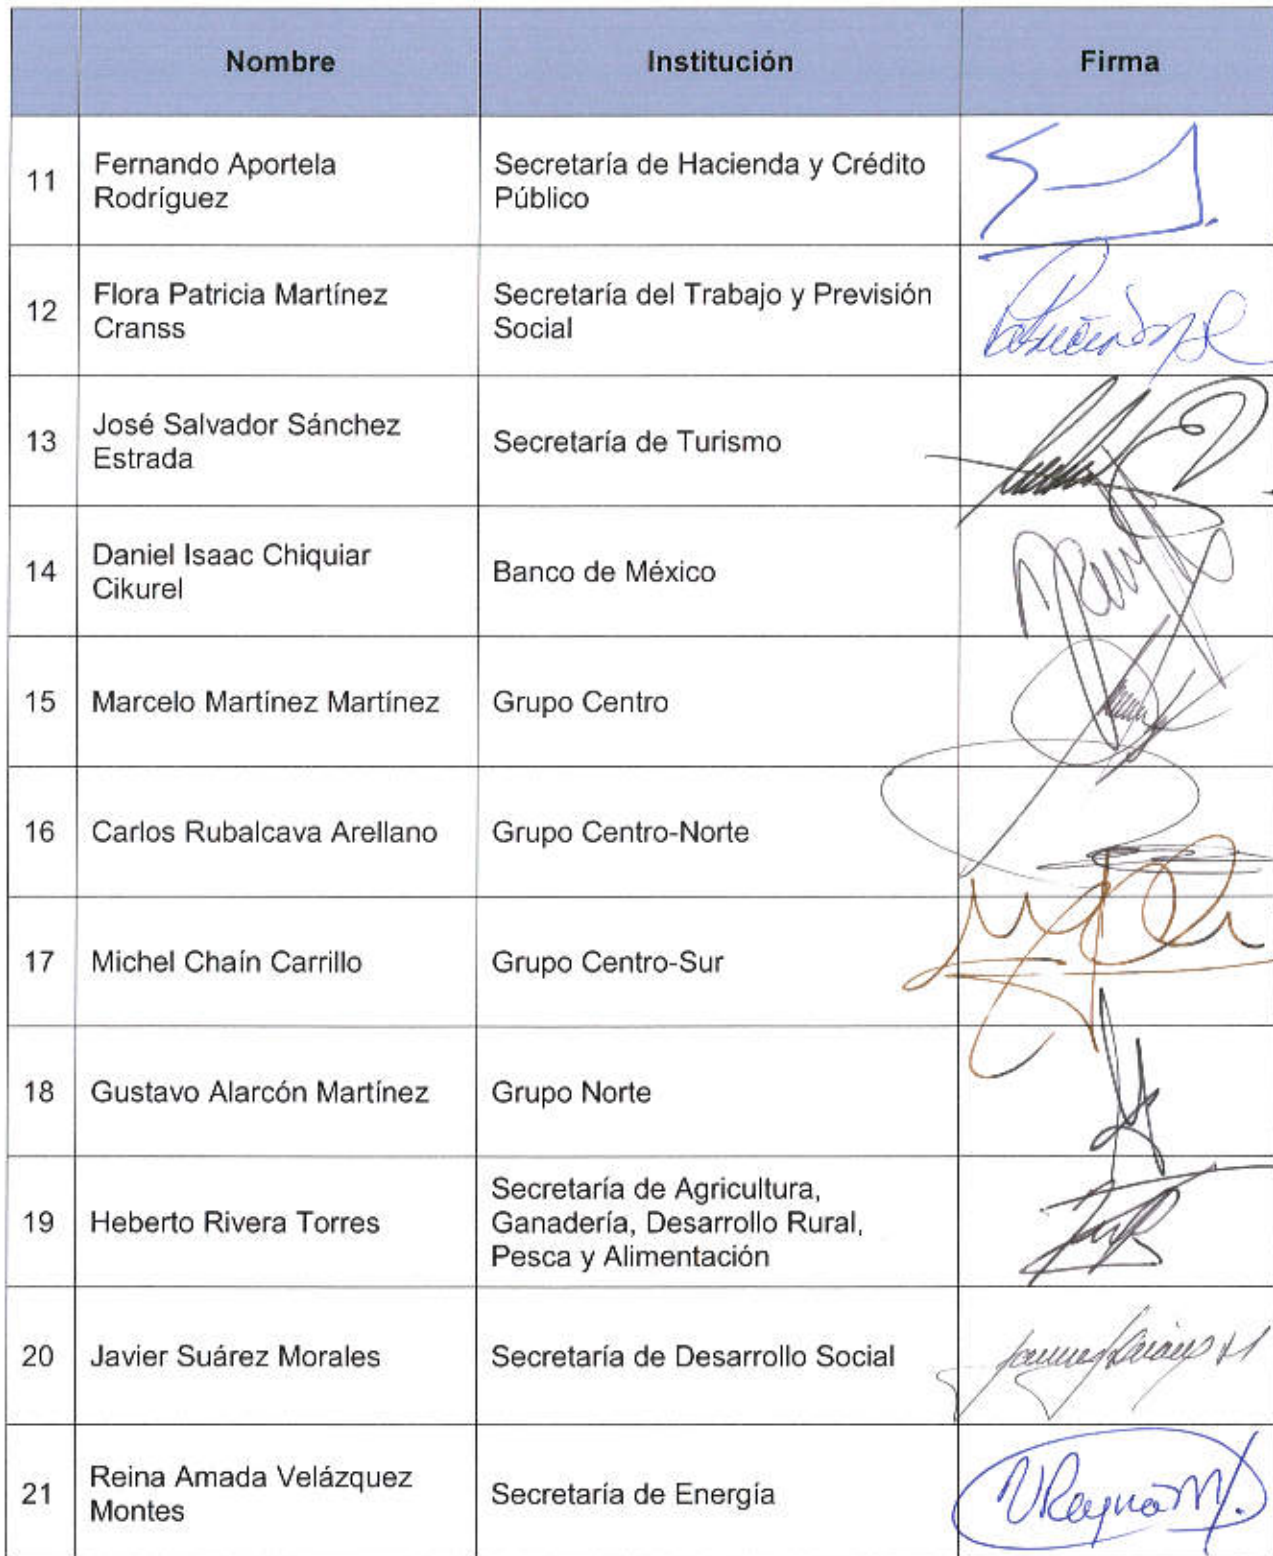 Nombre Institución Firma
11 Fernando Aportela Secretaría de Hacienda y Crédito
Rodríguez Público
12 Flora Patricia Martínez Secretaría del Trabajo y Previsión
Cranss Social
13 José Salvador Sánchez Secretaría de Turismo
Estrada
14 Daniel Isaac Chiquiar Banco de México
Cikurel
15 Marcelo Martínez Martínez Grupo Centro
16 Carlos Rubalcava Arellano Grupo Centro-Norte
17 Michel Chaín Carrillo Grupo Centro-Sur
18 Gustavo Alarcón Martínez Grupo Norte
19 Heberto Rivera Torres Secretaría de Agricultura,
Ganadería, Desarrollo Rural,
Pesca y Alimentación
20 Javier Suárez Morales Secretaría de Desarrollo Social
21 Reina Amada Velázquez Secretaría de Energía
Montes